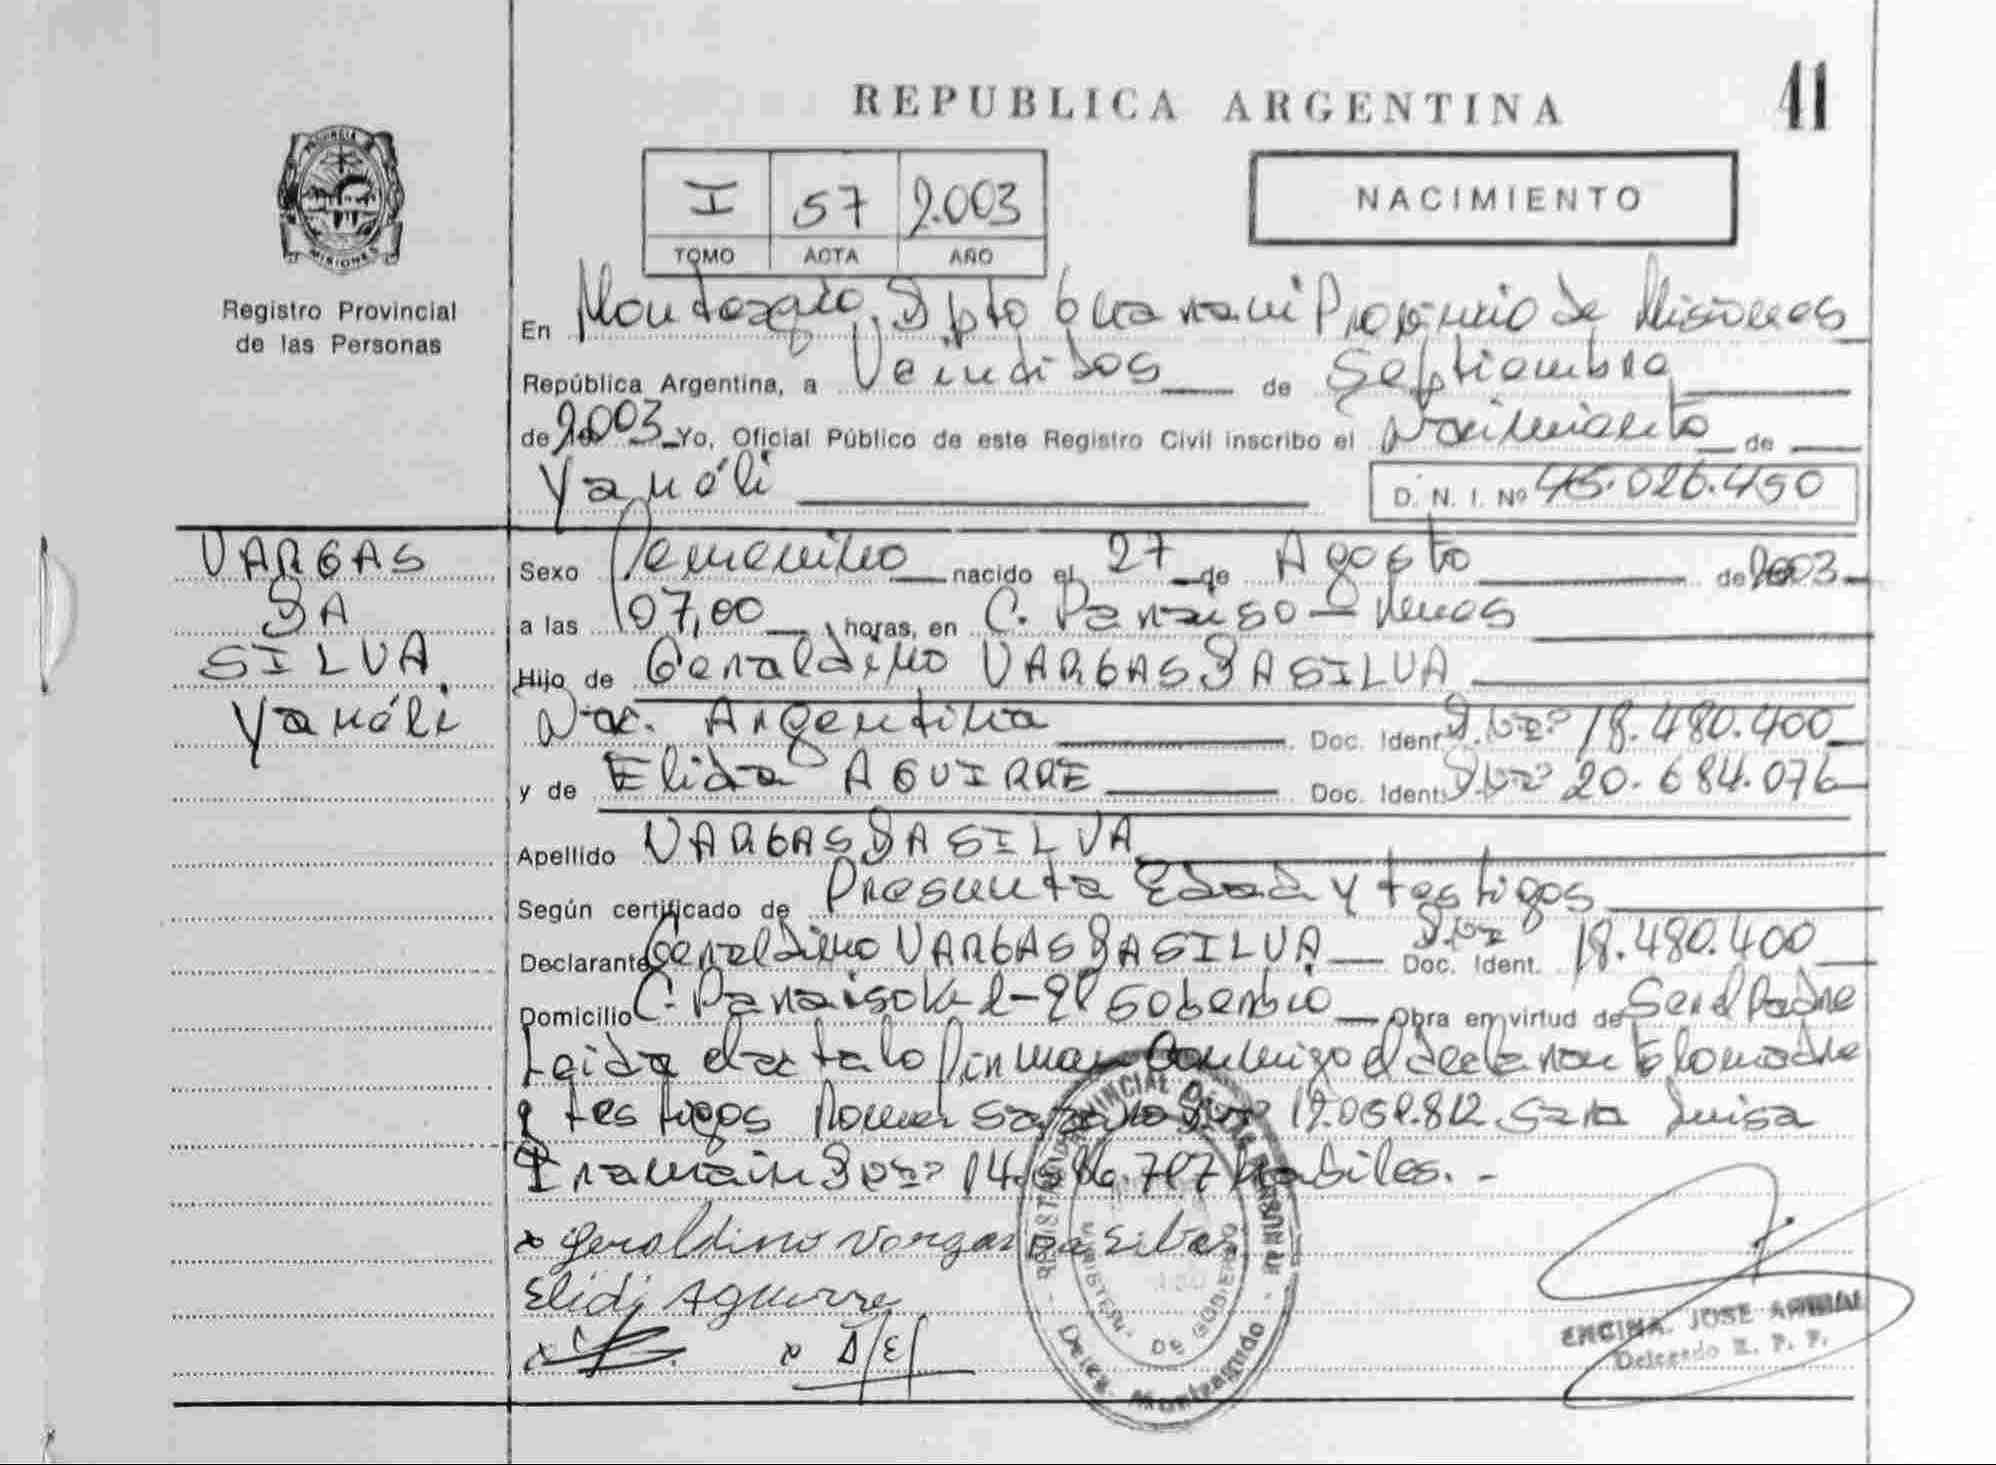 REPUBLICA ARGENTINA
41
PROVINCIA DE
MISIONES
Registro Provincial
de las Personas
I 57 2.003
TOMO ACTA AÑO
NACIMIENTO
En Monteagudo, Dpto Guarani Provincia de Misiones
República Argentina, a Veintidos de Septiembre
de 2.003 Yo, Oficial Público de este Registro Civil inscribo el Nacimiento de
Yanéli
D. N. I. Nº 45.026.450
VARGAS
DA
SILVA
Yanéli
Sexo Femenino nacido el 27 de Agosto de 2003
a las 07,00 horas, en C. Paraiso -
Hijo de Geraldino VARGAS DA SILVA
Nac. Argentina Doc. Ident. 18.480.400
y de Elida AGUIRRE Doc. Ident. 20.684.076
Apellido VARGAS DA SILVA
Según certificado de Presunta Edad y testigos
Declarante Geraldino VARGAS DA SILVA Doc. Ident. 18.480.400
Domicilio C. Paraiso - El Soberbio Obra en virtud de Ser el Padre
Leida el acta lo firman conmigo el declarante la madre
y testigos Luisa
habiles. -
x Geraldino Vargas Da Silva
Elida Aguirre
REGISTRO PROVINCIAL DE LAS PERSONAS
MINISTERIO DE GOBIERNO
Deleg. Monteagudo
ENCINA, JOSE ANIBAL
Delegado R. P. P.